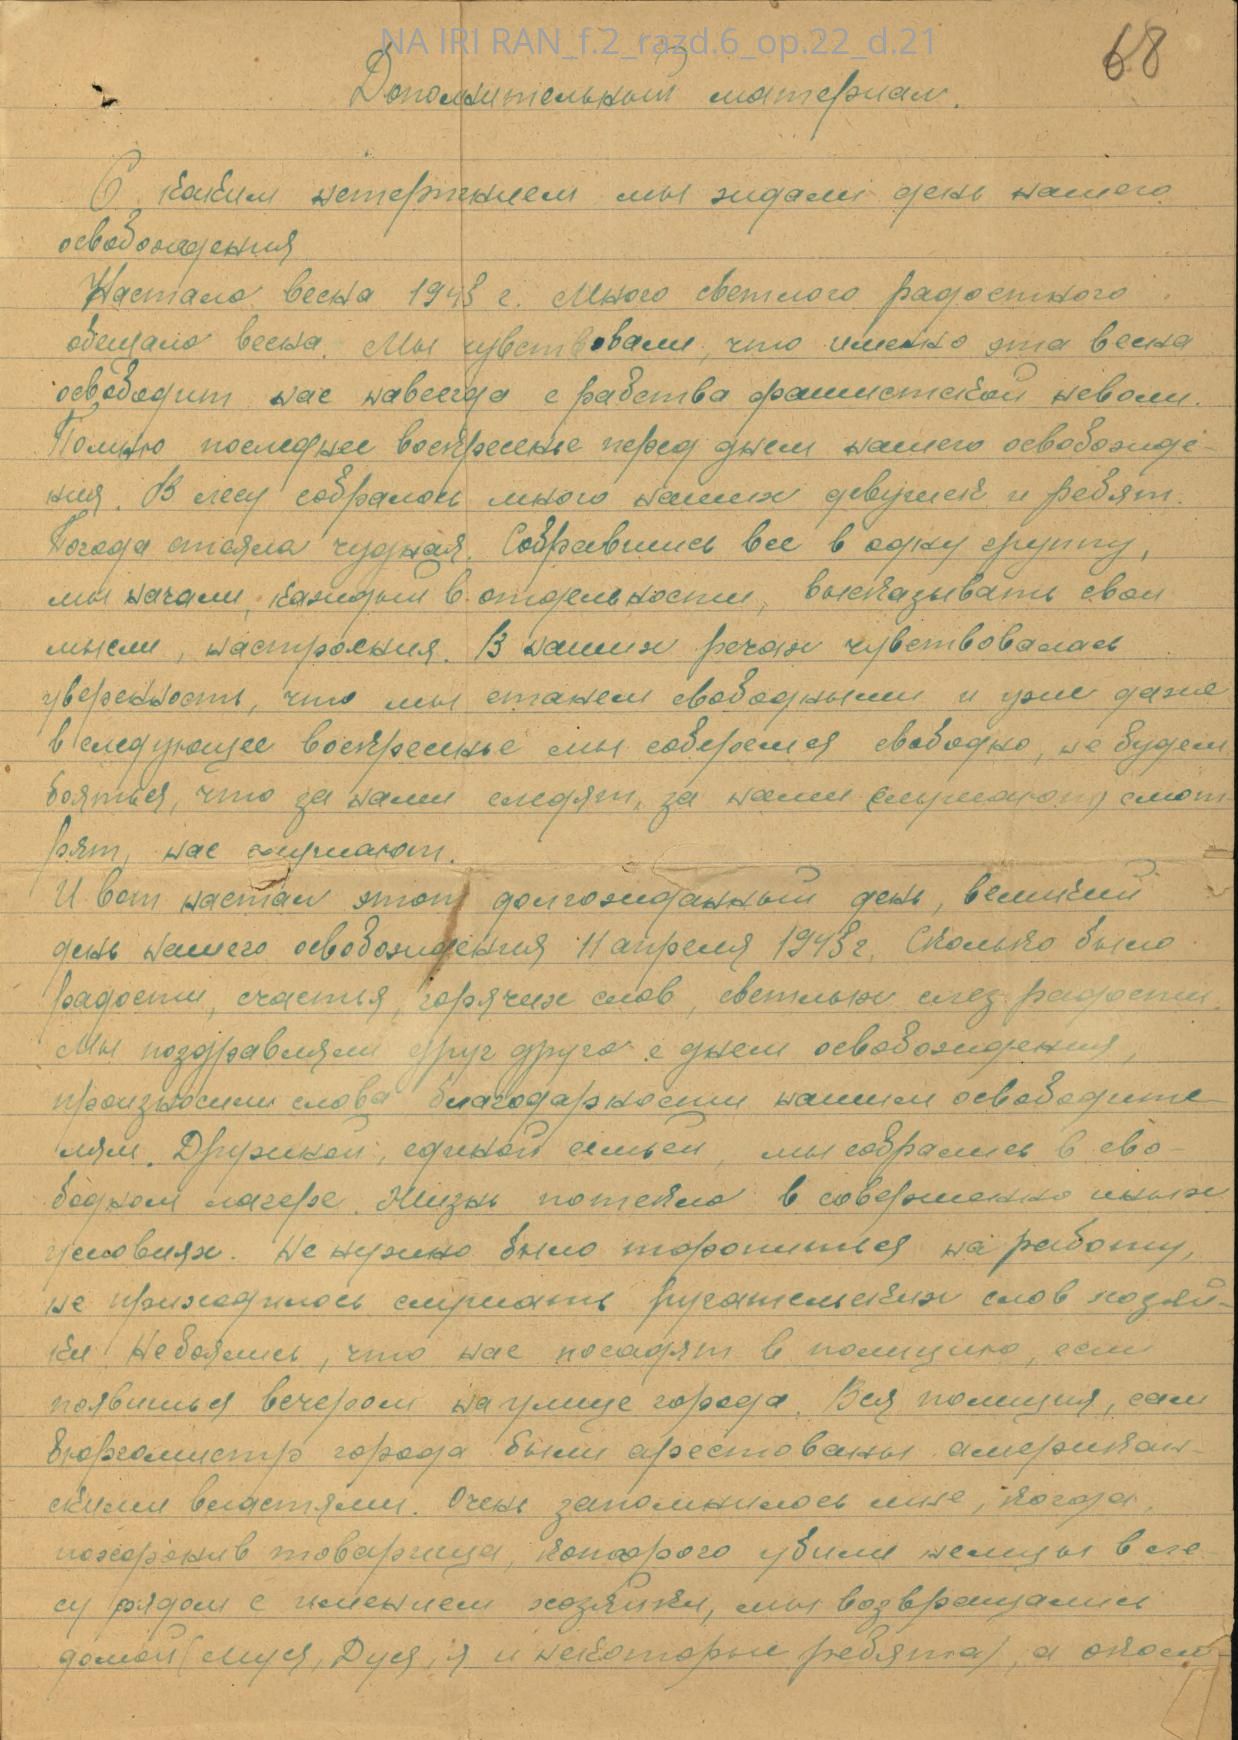 NA IRI RAN_f.2_razd.6_op.22_d.21
68
Дополнительный материал.
С каким нетерпением мы ждали день нашего
освобождения
Настала весна 1945 г. Много светлого радостного
обещала весна. Мы чувствовали, что именно эта весна
освободит нас навсегда с рабства фашистской неволи.
Помню последнее воскресенье перед днем нашего освобожде-
ния. В лесу собралось много наших девушек и ребят.
Погода стояла чудная. Собравшись все в одну группу,
мы начали, каждый в отдельности, высказывать свои
мысли, настроения. В наших речах чувствовалась
уверенность, что мы станем свободными и уже даже
в следующее воскресенье мы соберемся свободно, не будем
бояться, что за нами следят, за нами (слушают) смот
рят, нас слушают.
И вот настал этот долгожданный день, великий
день нашего освобождения 11 апреля 1945 г. Сколько было
радости, счастья, горячих слов, светлых слез радости.
Мы поздравляли друг друга с днем освобождения,
произносили слова благодарности нашим освободите-
лям. Дружной, единой семьей, мы собрались в сво-
бодном лагере. Жизнь потекла в совершенно иных
условиях. Не нужно было торопиться на работу,
не приходилось слушать ругательских слов хозяй-
ки. Не боялись, что нас посадят в полицию, если
появишься вечером на улице города. Вся полиция, сам
бюргомистр города были арестованы американ-
скими властями. Очень запомнилось мне, когда,
похоронив товарища, которого убили немцы в ле
су рядом с имением хозяйки, мы возвращались
домой (Муся, Дуся, я и некоторые ребята), а окол-